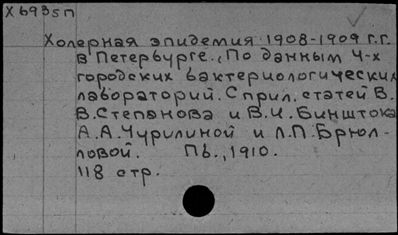 X693sп
Холерная эпидемия 1908-1909 г.г.
в Петербурге., По данным 4-х
городских бактериологических
лабораторий. С прил. статей В.
В. Степанова и В.И. Бинштока
А.А. Чурилиной и Л.П. Брюл-
ловой. Пб., 1910.
118 стр.